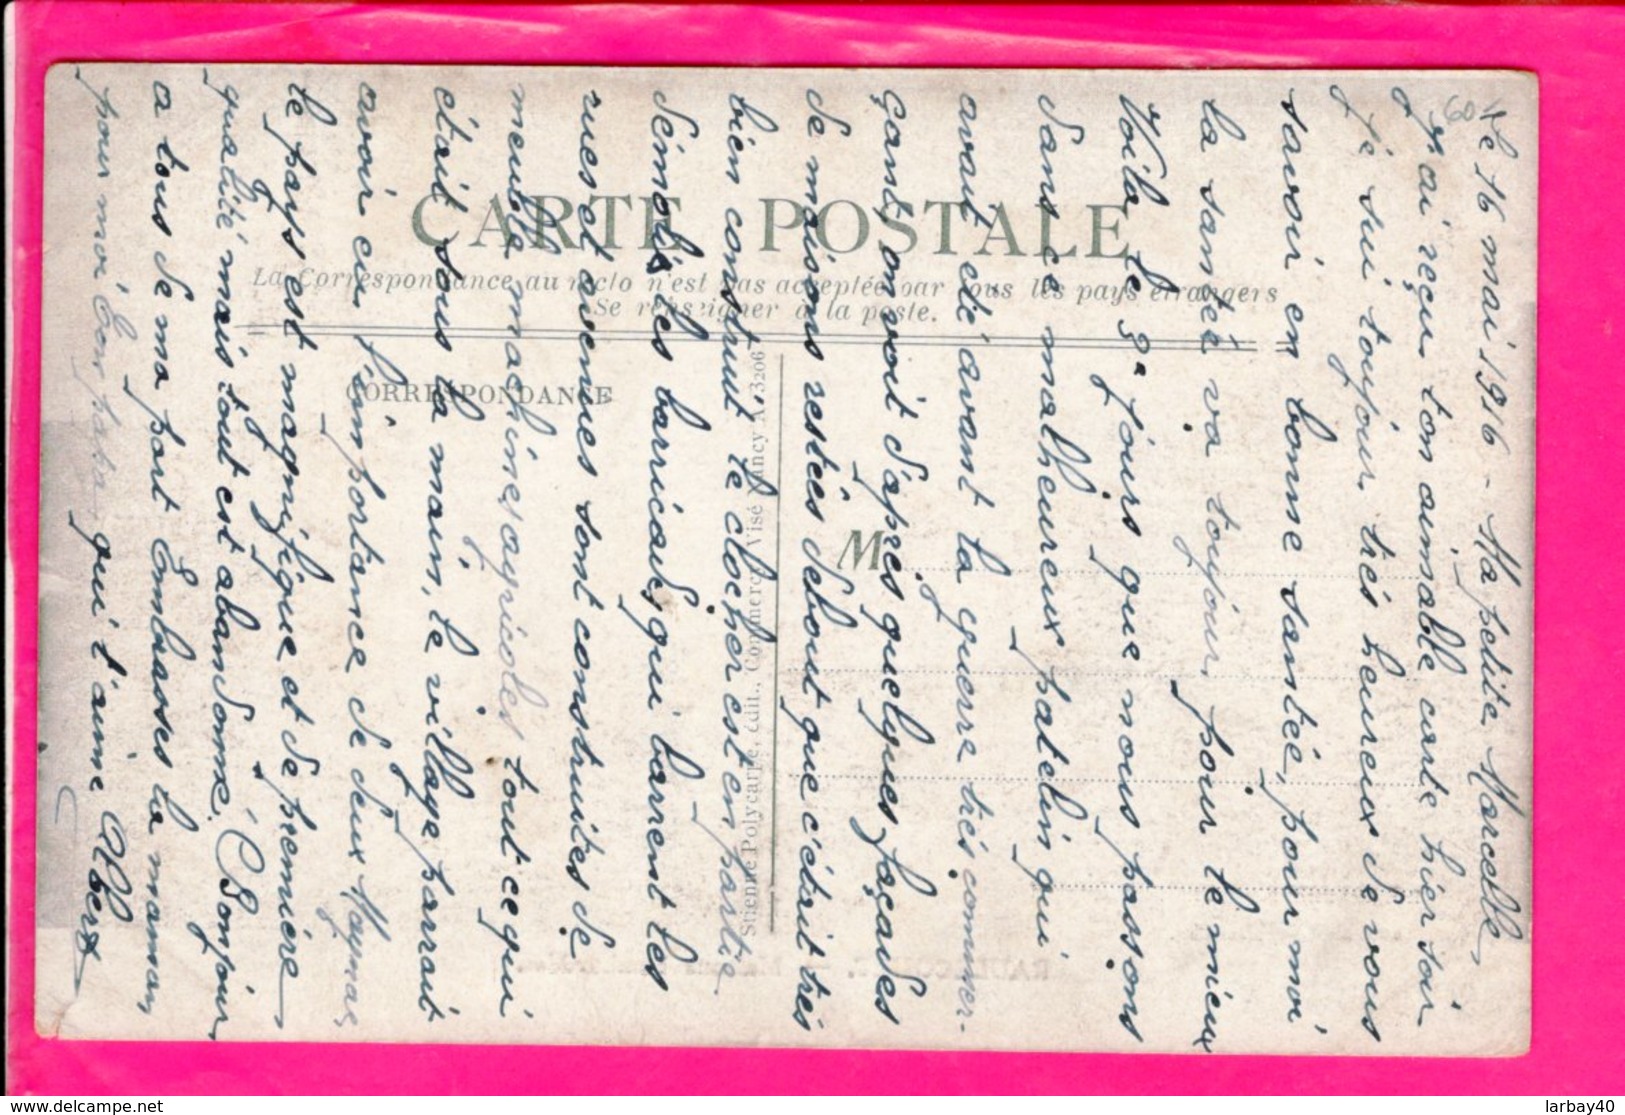 Le 16 mai 1916 - Ma petite Marcelle,
J'ai reçu ton aimable carte hier soir
je sui toujour très heureux de vous
savoir en bonne santée, pour moi
la santée va toujour pour le mieux
Voila le 3e jours que nous passons
dans ce malheureux patelin qui
avait été avant la guerre très commer-
çant, on voit d'après quelques façades
de maisons restées debout que c'était très
bien construit le clocher est en partie
démoli, les barricades qui barrent les
rues et avenues sont construites de
meuble machines agricoles tout ce qui
était sous la main, le village parrait
avoir eu l'importance de deux
le pays est magnifique et de première
qualité mais tout est abandonné. Bonjour
a tous de ma part Embrasses ta maman
pour moi Ton papa qui t'aime Albert
60
CARTE POSTALE
La Correspondance au recto n'est pas acceptée par tous les pays étrangers
Se renseigner à la poste.
CORRESPONDANCE
M
Stienne Polycarpe, édit., Commercy Visé Nancy A. 3206
larbay40
www.delcampe.net